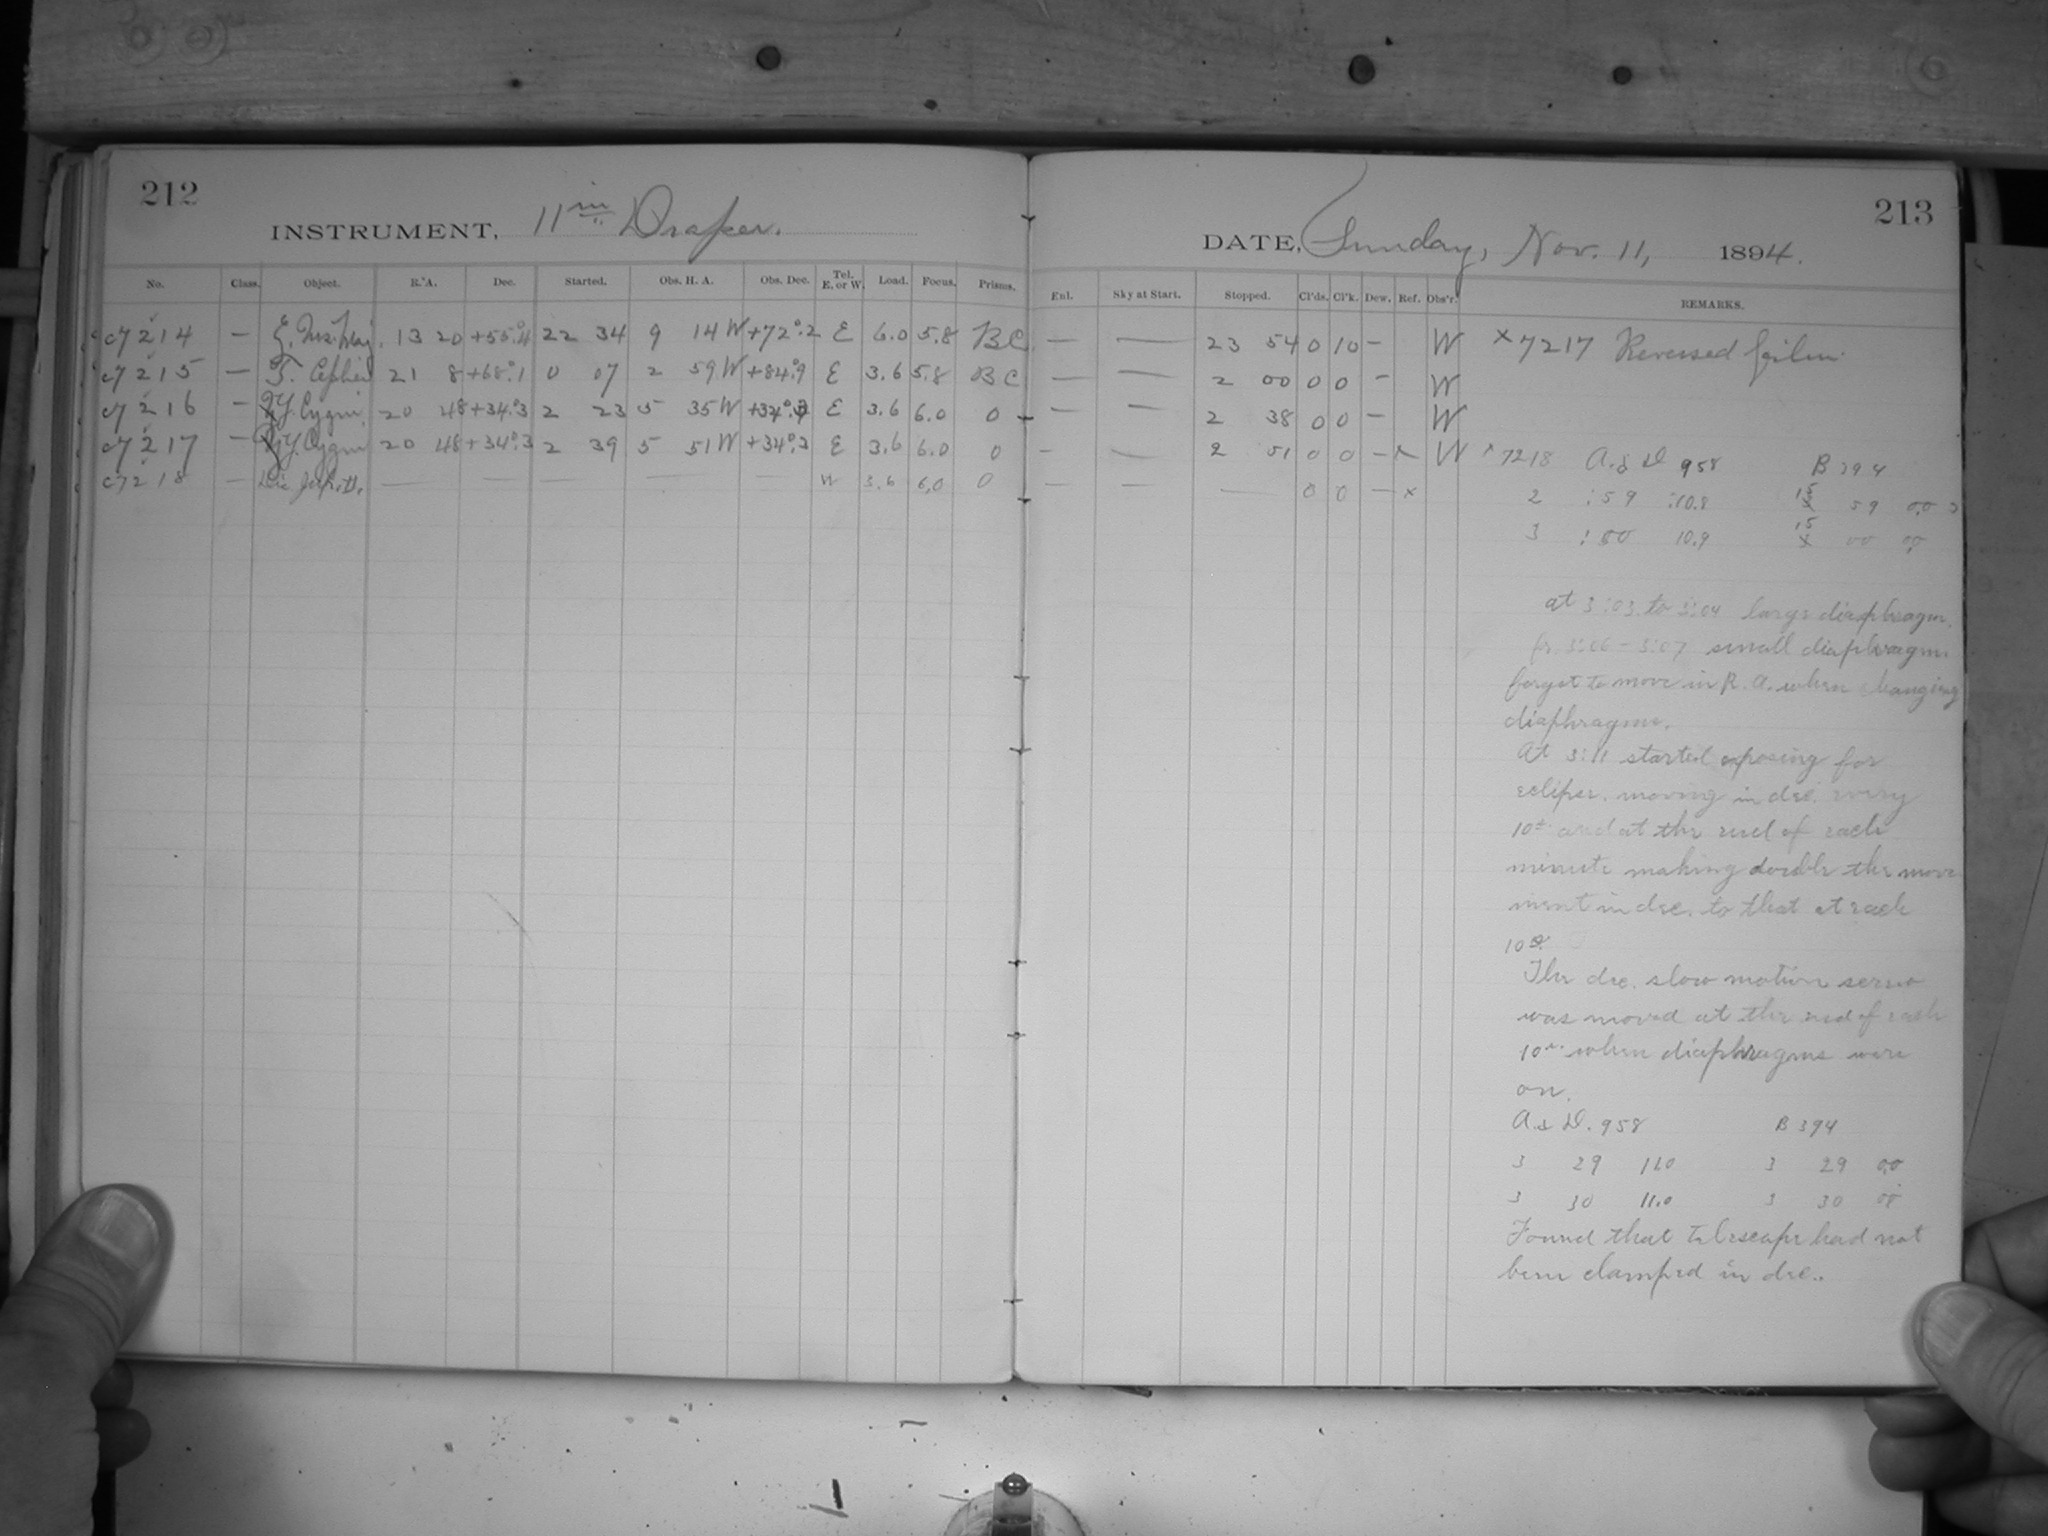 212
INSTRUMENT, 11 in. Draper.
No. Class. Object. R. A. Dec. Started. Obs. H. A. Obs. Dec. Tel. E. or W. Load. Focus. Prisms.
c7214 — 13 20 +55°.4 22 34 9 14 W +72°.2 E 6.0 5.8 BC
c7215 — T. Cephei 21 8 +68°.1 0 07 2 59 W +84°.9 E 3.6 5.8 BC
c7216 — Y. Cygni 20 48 +34°.3 2 23 5 35 W E 3.6 6.0 0
c7217 — Y. Cygni 20 48 +34°.3 2 39 5 51 W +34°.3 E 3.6 6.0 0
c7218 — — — — — — W 3.6 6.0 0
213
DATE, Sunday, Nov. 11, 1894.
Enl. Sky at Start. Stopped. Cl'ds. Cl'k. Dew. Ref. Obs'r. REMARKS.
— — 23 54 0 10 — W x 7217 Reversed film.
— — 2 00 0 0 — W
— — 2 38 0 0 — W
— — 2 51 0 0 — x W
— — — 0 0 — x
x 7218 A. & D. 958 B 394
2 :59 :10.8 15 59 0.0
3 : 00 10.9 15 00 0.0
at 3:03 to 3:04 large diaphragm.
fr. 3:06 - 3:07 small diaphragm.
forgot to move in R. A. when changing
diaphragms.
At 3:11 started exposing for
eclipse, moving in dec. every
10s. and at the end of each
minute making double the move
ment in dec. to that at each
10s.
The dec. slow motion screw
was moved at the end of each
10s. when diaphragms were
on.
A. & D. 958 B 394
3 29 11.0 3 29 0.0
3 30 11.0 3 30 0.0
Found that telescope had not
been clamped in dec..